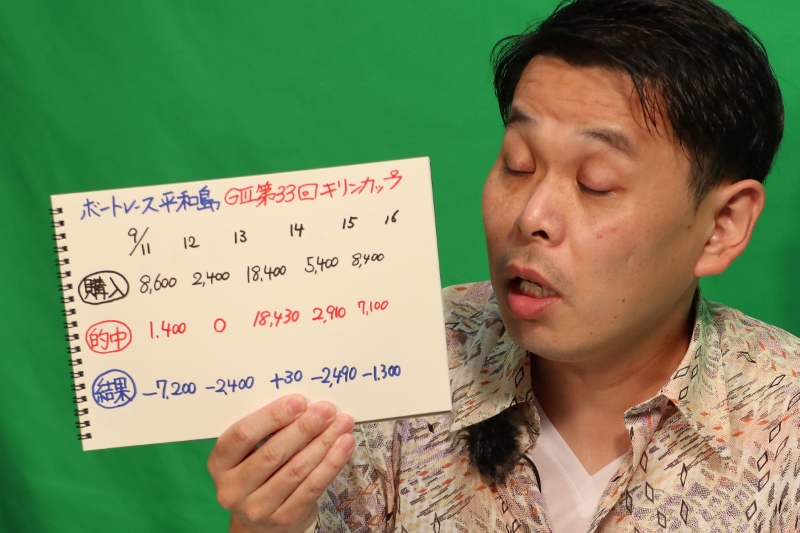 ボートレース平和島 GIII第33回キリンカップ
9/11 12 13 14 15 16
購入 8,600 2,400 18,400 5,400 8,400
的中 1.400 0 18,430 2,910 7,100
結果 -7,200 -2,400 +30 -2,490 -1.300